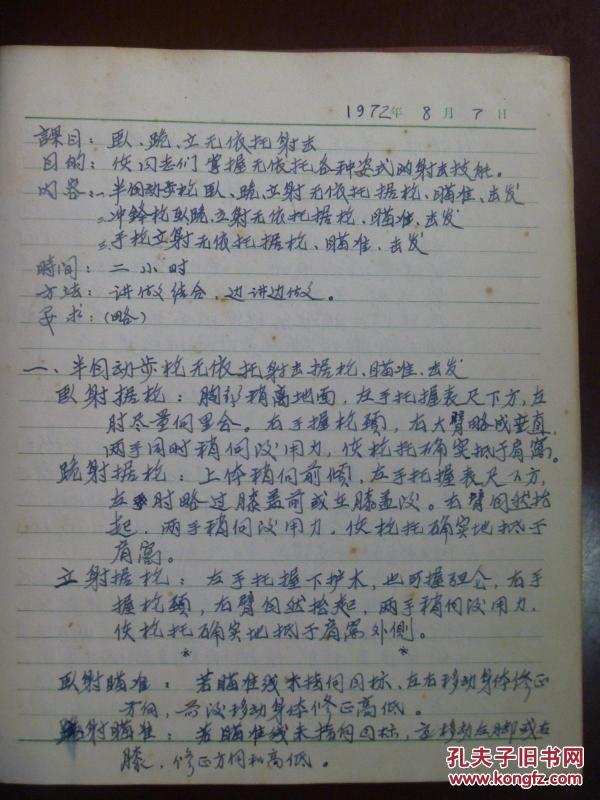 1972年 8月 7日
課目：卧、跪、立无依托射击
目的：使同志们掌握无依托各种姿式的射击技能。
内容：一、半自动步枪卧、跪、立射无依托据枪、瞄准、击发
二、冲锋枪卧跪、立射无依托据枪、瞄准、击发
三、手枪立射无依托据枪、瞄准、击发
時间：二小时
方法：讲做结合，边讲边做。
要求：(略)
一、半自动步枪无依托射击据枪、瞄准、击发
卧射据枪：胸部稍离地面，左手托握表尺下方，左
肘尽量向里合。右手握枪颈，右大臂略成垂直，
两手同时稍向后用力，使枪托确实抵于肩窝。
跪射据枪：上体稍向前倾，左手托握表尺下方，
左肘略过膝盖前或在膝盖后。右臂自然抬
起，两手稍向后用力，使枪托确实地抵于
肩窝。
立射据枪：左手托握下护木，也可握弹仓，右手
握枪颈，右臂自然抬起，两手稍向后用力，
使枪托确实地抵于肩窝外侧。
* *
卧射瞄准：若瞄准线未指向目标，左右移动身体修正
方向，前后移动身体修正高低。
跪射瞄准：若瞄准线未指向目标，应移动左脚或右
膝，修正方向和高低。
孔夫子旧书网
www.kongfz.com